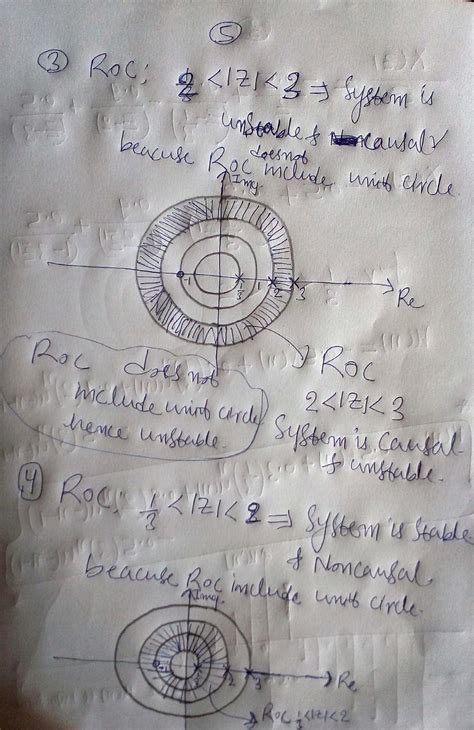 ⑤
③ ROC: 2 <|Z|< 3 ⇒ System is
unstable & causal
beacuse ROC does not include unit circle.
Img.
-1 1/3 1 2 3
Re
ROC does not
include unit circle
hence unstable.
ROC
2<|Z|< 3
System is causal
& unstable.
4 ROC: 1/3 <|Z|< 2 ⇒ System is stable
& Noncausal
beacuse ROC include unit circle.
Img.
-1 2 3 Re
ROC 1/3<|Z|<2